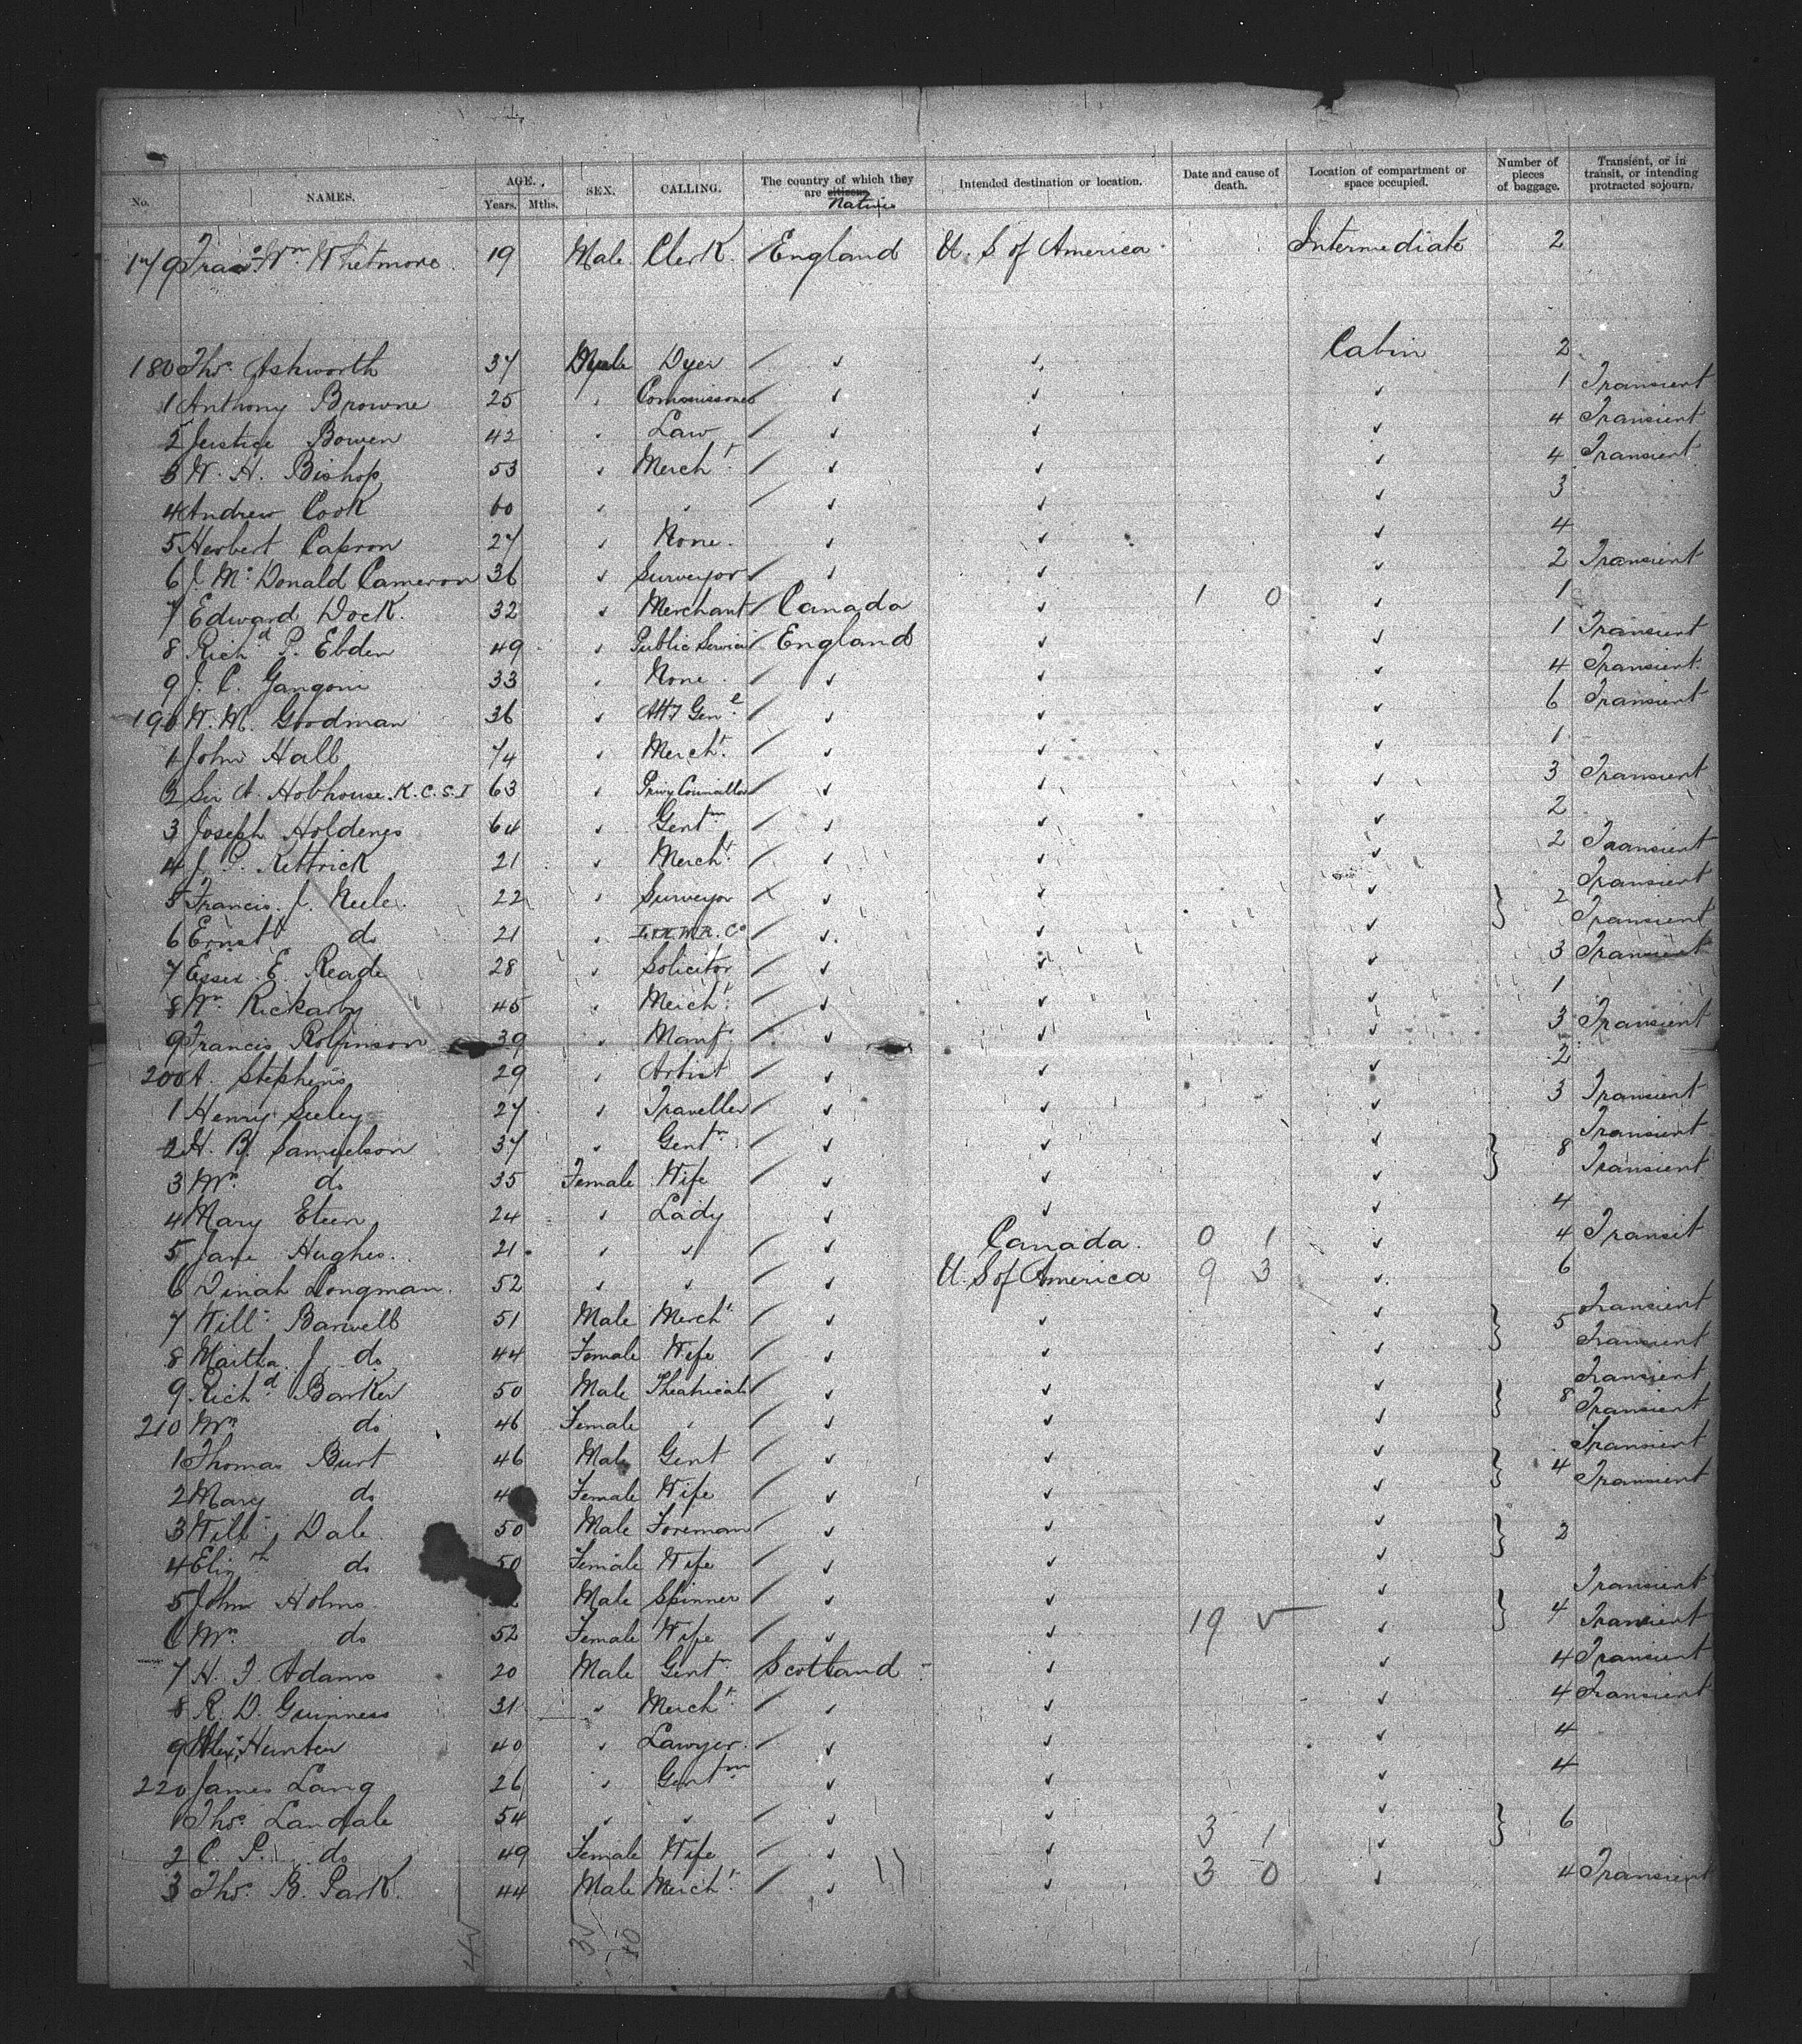 No. NAMES. AGE. Years. Mths. SEX. CALLING. The country of which they are citizens Natives Intended destination or location. Date and cause of death. Location of compartment or space occupied. Number of pieces of baggage. Transient, or in transit, or intending protracted sojourn.
179 Wm Whetmore 19 Male Clerk England U. S. of America Intermediate 2
180 Thos Ashworth 37 Male Dyer / ✓ ✓ Cabin 2
1 Anthony Browne 25 " Commissioner / ✓ ✓ ✓ 1 Transient
2 Justice Bowen 42 " Law / ✓ ✓ ✓ 4 Transient
3 W. H. Bishop 53 " Merch t / ✓ ✓ ✓ 4 Transient
4 Andrew Cook 60 " " / ✓ ✓ ✓ 3
5 Herbert Capron 27 " None / ✓ ✓ ✓ 4
6 J. Mc Donald Cameron 36 " Surveyor / ✓ ✓ ✓ 2 Transient
7 Edward Dock. 32 " Merchant / Canada ✓ 1 0 ✓ 1
8 Richd P. Ebden 49 " Public Service / England ✓ ✓ 1 Transient
9 J. C. 33 " None / ✓ ✓ ✓ 4 Transient
190 W. M. Goodman 36 " Att Genl / ✓ ✓ ✓ 6 Transient
1 John Hall 74 " Mercht / ✓ ✓ ✓ 1
2 Sir A. Hobhouse. K. C. S. I 63 " Privy Councillor / ✓ ✓ ✓ 3 Transient
3 Joseph Holdenes 64 " Gentm / ✓ ✓ ✓ 2
4 J. P. Kettrick 21 " Mercht / ✓ ✓ ✓ 2 Transient
5 Francis. J. 22 " Surveyor / ✓ ✓ ✓ } 2 Transient
6 Ernst do 21 " / ✓ ✓ ✓ Transient
7 Essex E. Reade 28 " Solicitor / ✓ ✓ ✓ 3 Transient
8 Wm Rickarby 45 " Mercht / ✓ ✓ ✓ 1
9 Francis Robinson 39 " Manf / ✓ ✓ ✓ 3 Transient
200 A. Stephens 29 " Artist / ✓ ✓ ✓ 2
1 Henry Seeley 27 " Traveller / ✓ ✓ ✓ 3 Transient
2 H. B. Samuelson 37 " Gentn / ✓ ✓ ✓ } 8 Transient
3 Mrs do 35 Female Wife / ✓ ✓ ✓ Transient
4 Mary 24 " Lady / ✓ ✓ ✓ 4
5 Jane Hughes. 21 " " / ✓ Canada. 0 1 ✓ 4 Transit
6 Dinah Longman. 52 " " / ✓ U. S of America 9 3 ✓ 6
7 Willm Barwell 51 Male Mercht / ✓ ✓ ✓ } 5 Transient
8 Martha. J. do 44 Female Wife / ✓ ✓ ✓ Transient
9 Richd Barker 50 Male Theatrical / ✓ ✓ ✓ } 8 Transient
210 Mrs do 46 Female " / ✓ ✓ ✓ Transient
1 Thomas Burt 46 Male Gent / ✓ ✓ ✓ } 4 Transient
2 Mary do 4 Female Wife / ✓ ✓ ✓ Transient
3 Willm Dale 50 Male Foreman / ✓ ✓ ✓ } 2
4 Elizth do 50 Female Wife / ✓ ✓ ✓
5 John Holms Male Spinner / ✓ ✓ ✓ } 4 Transient
6 Mrs do 52 Female Wife / ✓ ✓ 19 ✓ ✓ Transient
7 H. J. Adams 20 Male Gent Scotland ✓ ✓ 4 Transient
8 R. D. Guinness 31 " Mercht / ✓ ✓ ✓ 4 Transient
9 Alex Hunter 40 " Lawyer. / ✓ ✓ ✓ 4
220 James Lang 26 " Gentm ✓ ✓ ✓ 4
1 Thos Landale 54 " " / ✓ ✓ 3 1 ✓ } 6
2 C. P. do 49 Female Wife / ✓ ✓ ✓
3 Thos B. Park. 44 Male Mercht / ✓ ✓ 3 0 ✓ 4 Transient